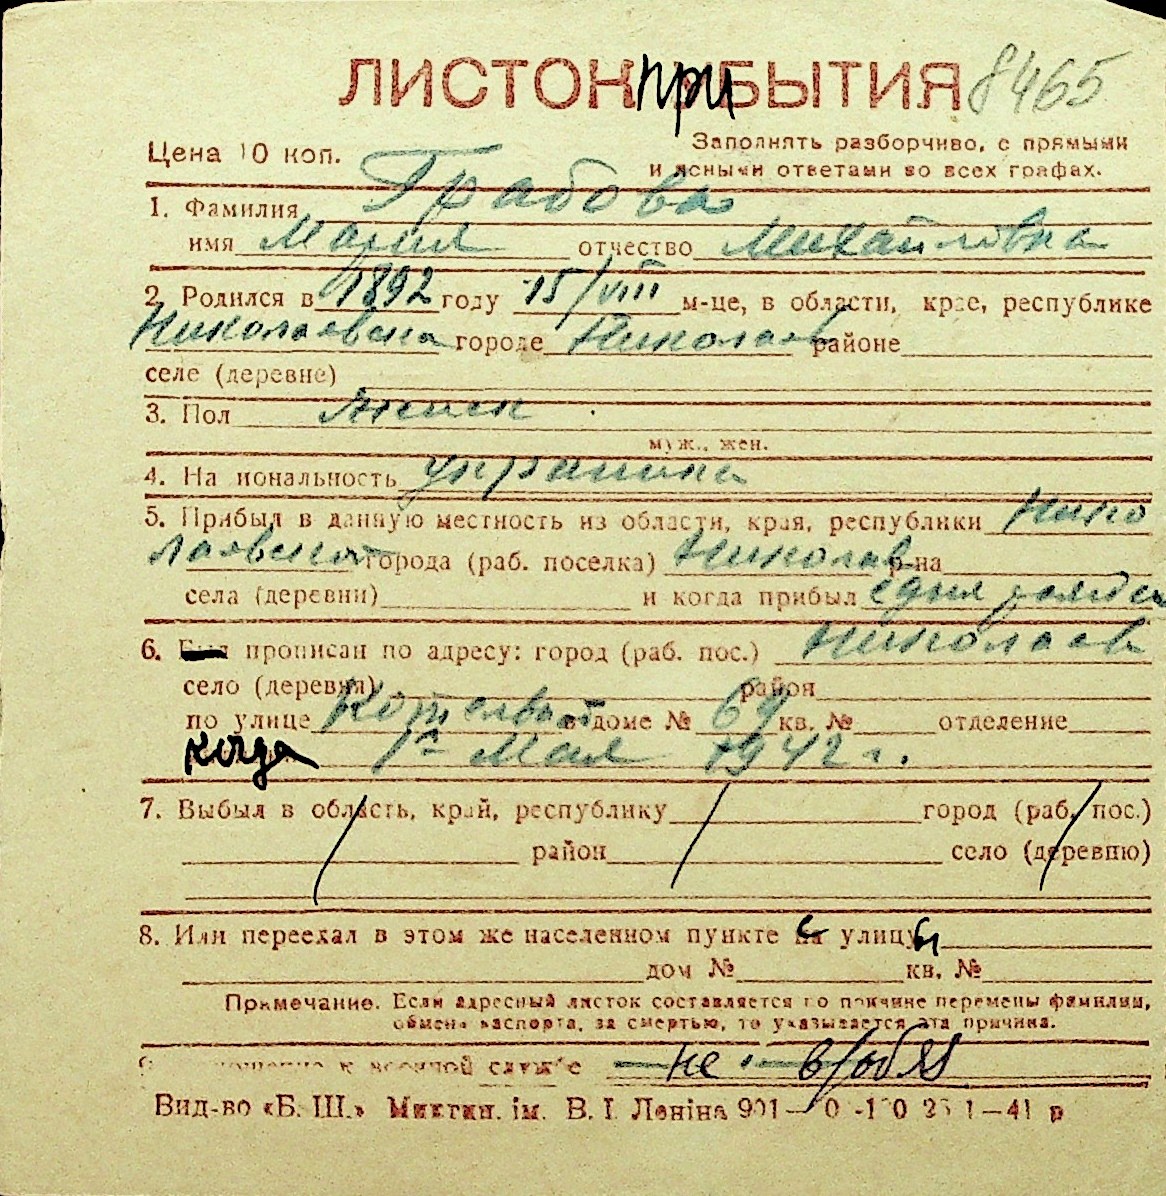 ЛИСТОК ПРИБЫТИЯ 8465
Цена 10 коп.
Заполнять разборчиво, с прямыми
и ясными ответами во всех графах.
1. Фамилия Грабова
имя Мария отчество Михайловна
2. Родился в 1892 году 15/VIII м-це, в области, крае, республике
Николаевска городе Николаев районе
селе (деревне)
3. Пол женск
муж., жен.
4. Национальность украинка
5. Прибыл в данную местность из области, края, республики Нико
лаевской города (раб. поселка) Николаев р-на
села (деревни) и когда прибыл
6. прописан по адресу: город (раб. пос.) Николаев
село (деревня) район
по улице в доме № 69 кв. № отделение
когда 1го Мая 1942 г.
7. Выбыл в область, край, республику город (раб. пос.)
район село (деревню)
8. Или переехал в этом же населенном пункте с улицы
дом № кв. №
Примечание. Если адресный листок составляется по причине перемены фамилии,
обмена паспорта, за смертью, то указывается эта причина.
к военной службе не в/обяз
Вид-во «Б. Ш.» Миктип. ім. В. І. Леніна 901— 1—41 р